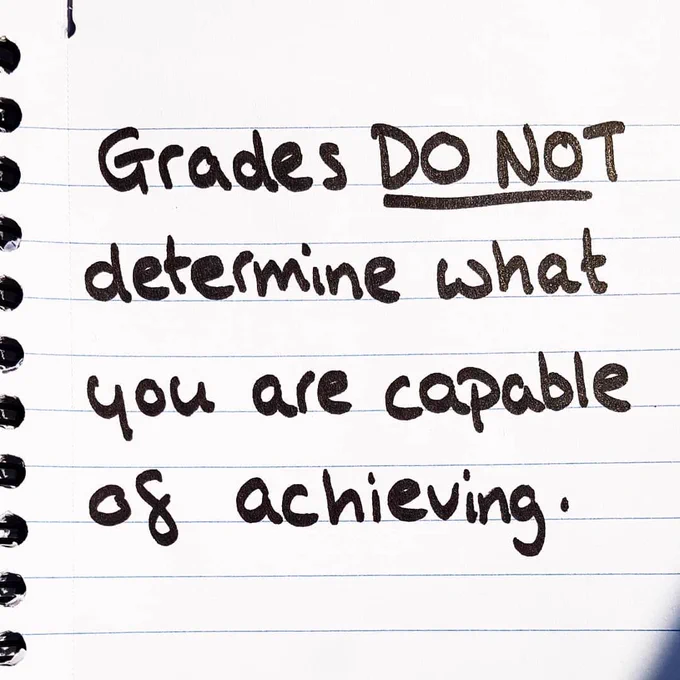 Grades DO NOT
determine what
you are capable
of achieving.